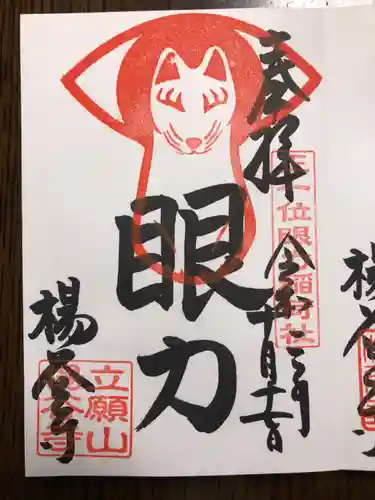 奉拝
正一位眼力稲荷社
令和二年十一月十六日
眼力
楊谷寺
立願山
楊谷寺